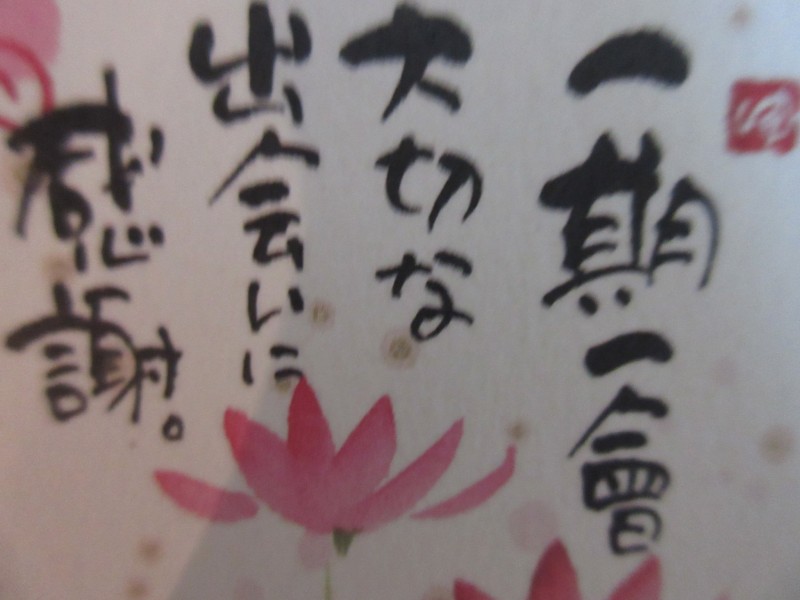 一期一會
大切な
出会いに
感謝。